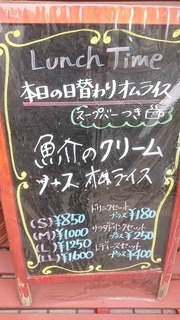 Lunch Time
本日の日替わりオムライス
スープバーつき
魚介のクリーム
ソース オムライス
(S) ¥850
(M) ¥1000
(L) ¥1250
(LL) ¥1600
ドリンクセット
プラス ¥180
サラダドリンクセット
プラス ¥250
レディースセット
プラス ¥400